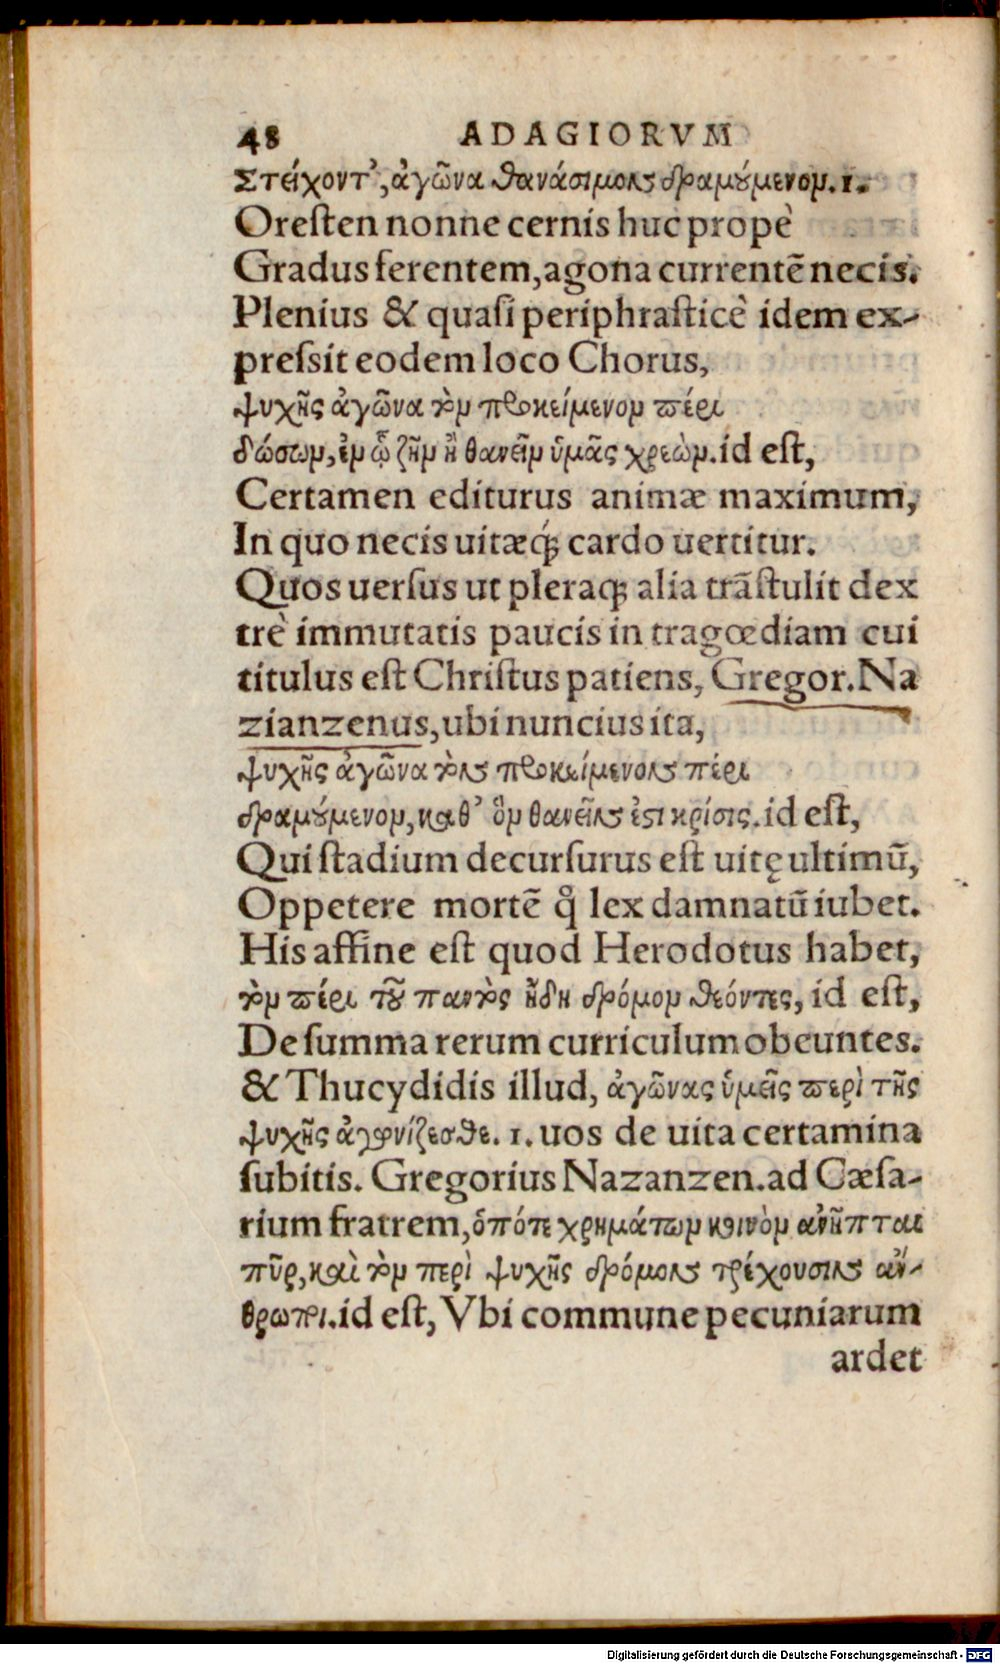 48 ADAGIORVM
Στείχοντ’, ἀγῶνα θανάσιμον δραμούμενον. 1.
Oresten nonne cernis huc propè
Gradus ferentem, agona currentē necis.
Plenius & quasi periphrasticè idem ex-
pressit eodem loco Chorus,
ψυχῆς ἀγῶνα τὸν προκείμενον πέρι
δώσων, ἐν ᾧ ζῆν ἢ θανεῖν ὑμᾶς χρεών. id est,
Certamen editurus animæ maximum,
In quo necis uitæq́; cardo uertitur.
Quos uersus ut pleraq; alia trāstulit dex
trè immutatis paucis in tragœdiam cui
titulus est Christus patiens, Gregor. Na
zianzenus, ubi nuncius ita,
ψυχῆς ἀγῶνα τὸν προκείμενον πέρι
δραμούμενον, καθ’ ὃν θανεῖν ἐστι κρίσις. id est,
Qui stadium decursurus est uitę ultimū,
Oppetere mortē q̊ lex damnatū iubet.
His affine est quod Herodotus habet,
τὸν πέρι τοῦ παντὸς ἤδη δρόμον θέοντες, id est,
De summa rerum curriculum obeuntes.
& Thucydidis illud, ἀγῶνας ὑμεῖς περὶ τῆς
ψυχῆς ἀγωνίζεσθε. 1. uos de uita certamina
subitis. Gregorius Nazanzen. ad Cæsa-
rium fratrem, ὁπότε χρημάτων κοινὸν ἀνῆπται
πῦρ, καὶ τὸν περὶ ψυχῆς δρόμον τρέχουσιν ἄν-
θρωποι. id est, Vbi commune pecuniarum
ardet
Digitalisierung gefördert durch die Deutsche Forschungsgemeinschaft - DFG